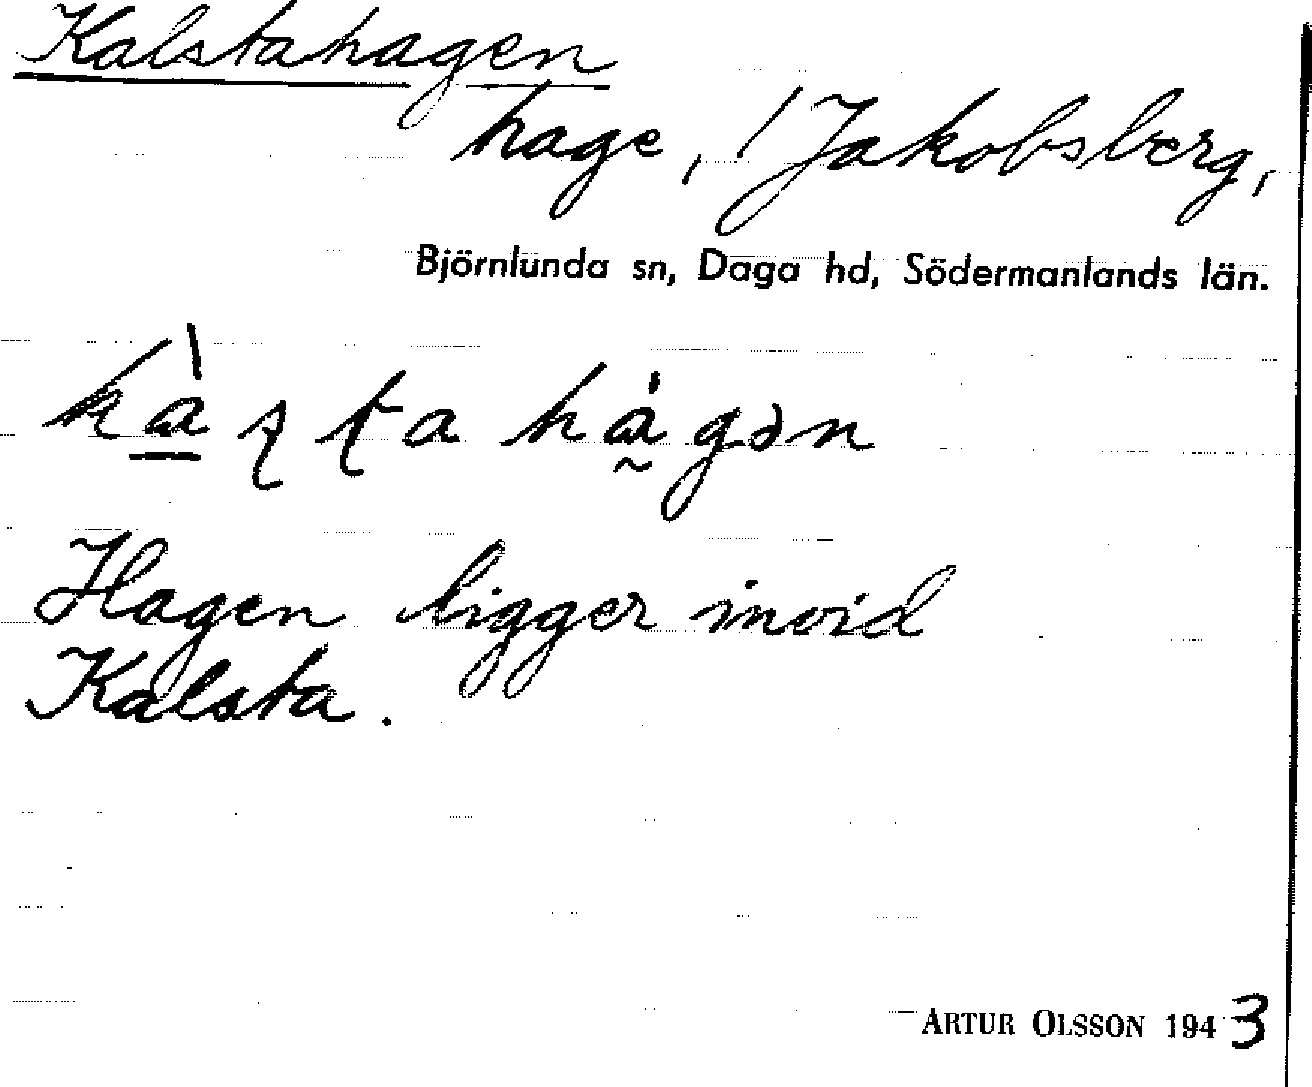 Kalstahagen
hage, / Jakobsberg,
Björnlunda sn, Daga hd, Södermanlands län.
kàʂʈahágən
Hagen ligger invid
Kalsta.
ARTUR OLSSON 1943